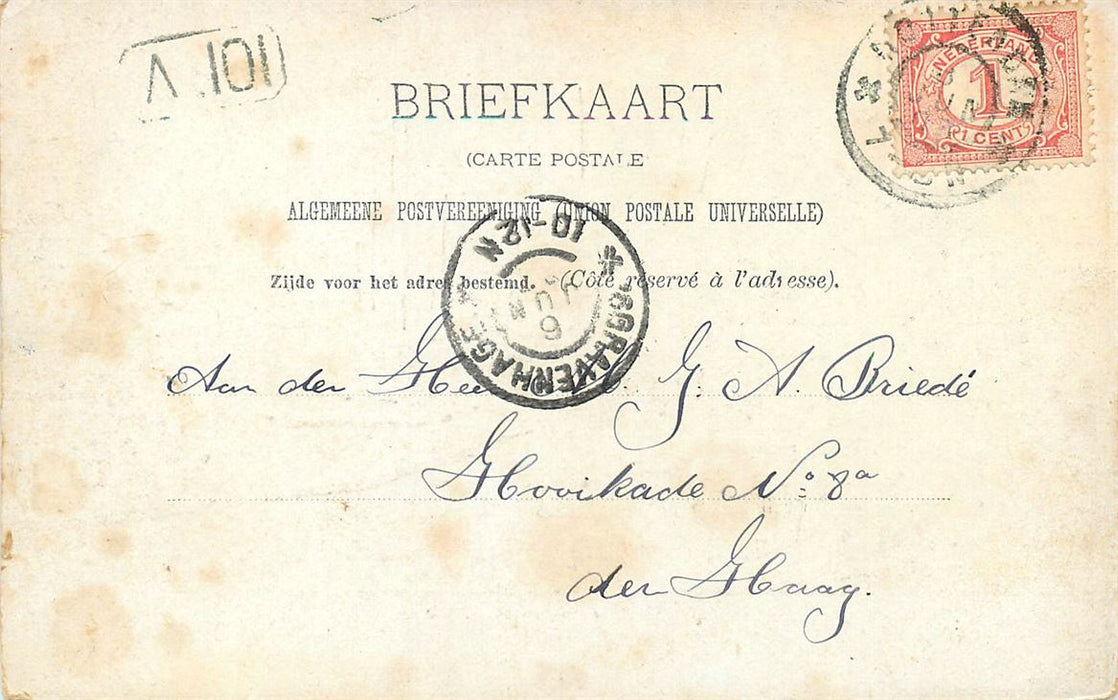 V 101
NEDERLAND
1
1 CENT
BRIEFKAART
(CARTE POSTALE
ALGEMEENE POSTVEREENIGING (UNION POSTALE UNIVERSELLE)
Zijde voor het adres bestemd. (Côté réservé à l'adresse).
'SGRAVENHAGE
6 JUN
10-12N
Aan den Heer G. A. Briedé
Hooikade No. 8a
den Haag.